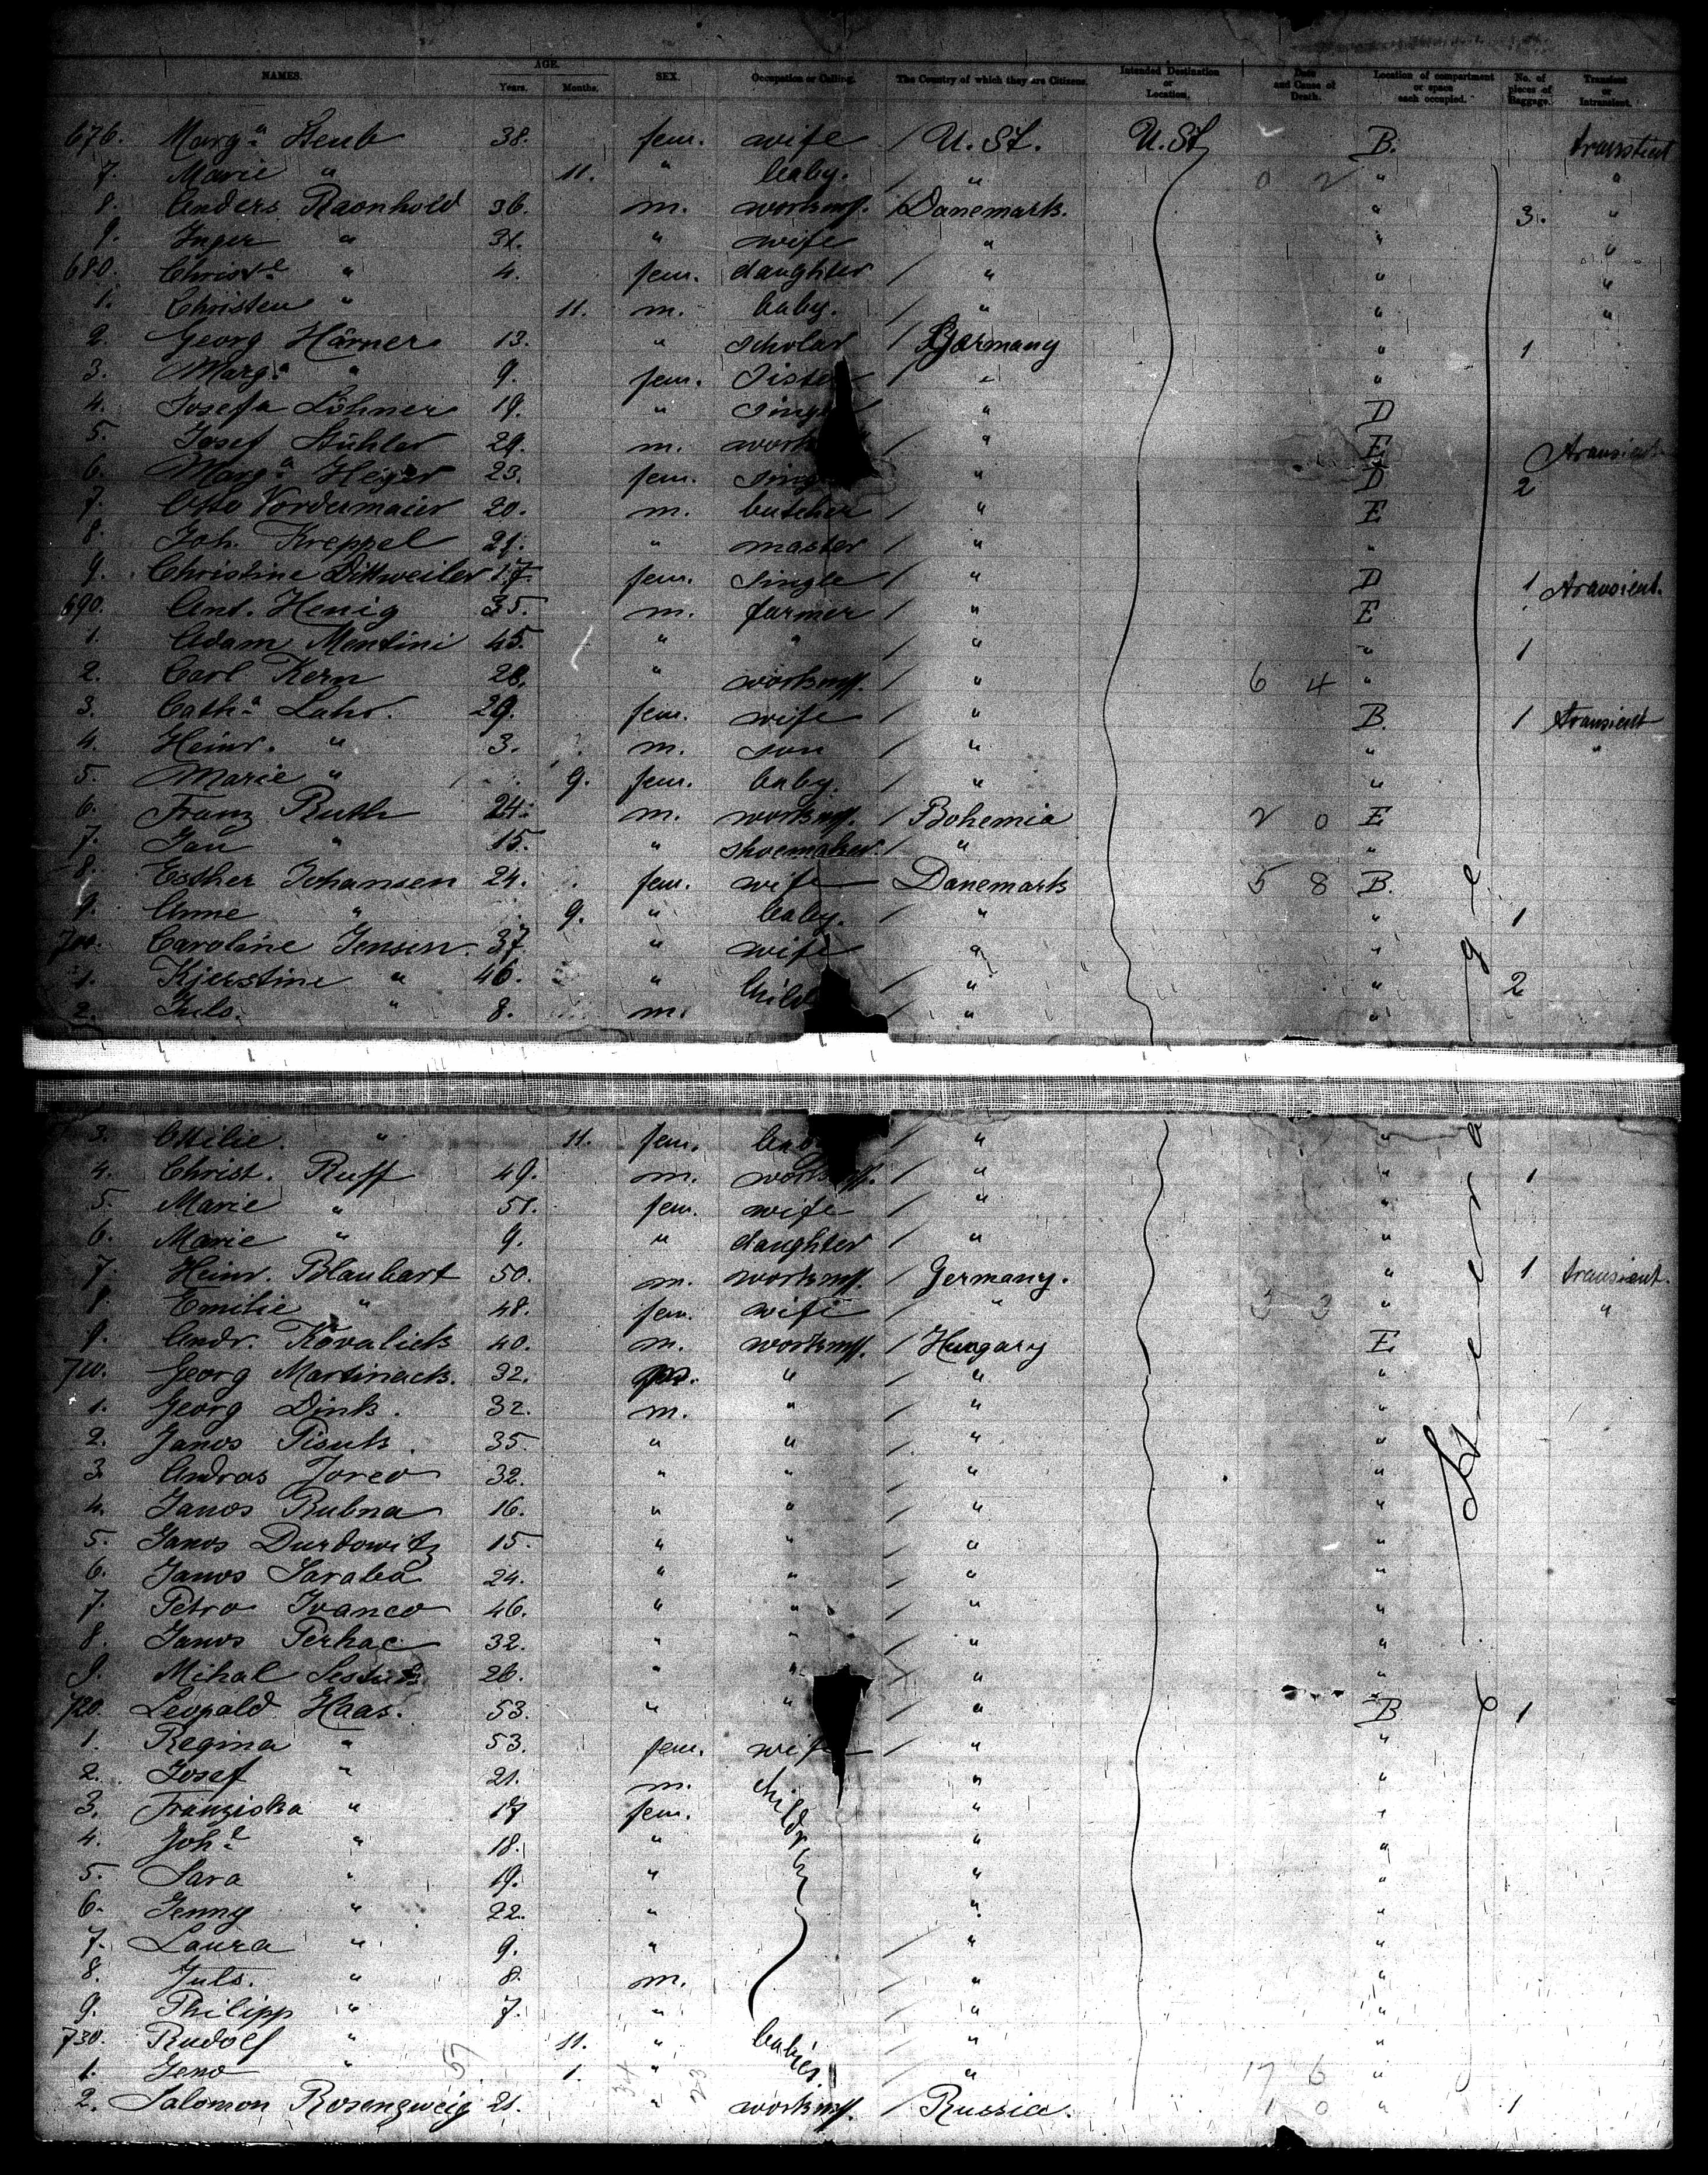 NAMES. AGE. Years. Months. SEX. Occupation or Calling. The Country of which they are Citizens. Intended Destination or Location. Date and Cause of Death. Location of compartment or space each occupied. No. of pieces of Baggage. Transient or Intransient.
676. Marg.a Steub 38. fem. wife / U. St. U. St. B. transient
7. Marie " 11. " baby. / " 0 2 " "
8. Anders Raonhold 36. m. workm. / Danemark. " 3. "
9. Inger " 31. " wife " " "
680. Christ.e " 4. fem. daughter / " " "
1. Christen " 11. m. baby. / " " "
2. Georg Härner 13. " scholar / Germany " 1
3. Marg.a " 9. fem. Sister / " "
4. Josefa Löhner 19. " Single / " D
5. Josef Stühler 29. m. workm. / " E transient
6. Marg.a Heger 23. fem. Single " D 2
7. Otto Vordermaier 20. m. butcher / " E
8. Joh. Kreppel 21. " master / " "
9. Christine Dittweiler 17. fem. Single / " D 1 transient.
690. Ant. Henig 35. m. farmer / " E
1. Adam Montini 45. " " / " " 1
2. Carl Kern 28. " workm. / " 6 4 "
3. Cath.a Lahr. 29. fem. wife / " B. 1 transient
4. Heinr. " 3. m. son / " " "
5. Marie " 9. fem. baby. / " "
6. Franz Ruth 24. m. workm. / Bohemia 2 0 E
7. Jan " 15. " shoemaker. / " "
8. Esther Johansen 24. fem. wife Danemark 5 8 B.
9. Anne " 9. " baby. / " " 1
700. Caroline Jensen. 37. " wife " "
1. Kjerstine " 46. " / " " 2
2. Juls. " 8. m. child / " "
3. Ottilie " 11. fem. baby / " "
4. Christ. Ruff 49. m. workm. / " " 1
5. Marie " 51. fem. wife / " "
6. Marie " 9. " daughter / " "
7. Heinr. Blauhart 50. m. workm. / Germany. " 1 transient.
8. Emilie " 48. fem. wife / " 3 3 " "
9. Andr. Kovalick 40. m. workm. / Hungary E
710. Georg Martinack. 32. m. " / " "
1. Georg Dink. 32. m. " / " "
2. Janos Pisuk. 35. " " / " "
3. Andras Joreo 32. " " / " "
4. Janos Bubna 16. " " / " "
5. Janos Durdowitz 15. " " / " "
6. Janos Saraba 24. " " / " "
7. Petro Ivanco 46. " " / " "
8. Janos Perhac 32. " " / " "
9. Mihal 26. " " / " "
720. Leopold Haas. 53. " " / " B 1
1. Regina " 53. fem. wife / " "
2. Josef " 21. m. children " "
3. Franziska " 17 fem. " "
4. Joh.e " 18. " / " "
5. Sara " 19. " / " "
6. Jenny " 22. " " "
7. Laura " 9. " / " "
8. Juls. " 8. m. / " "
9. Philipp " 7. " / " "
730. Rudolf " 11. " babies. " "
1. Jeno " 1. " / " 17 6 "
2. Salomon Rosenzweig 21. " workm. / Russia. 1 0 " 1
Steerage
57 34 23